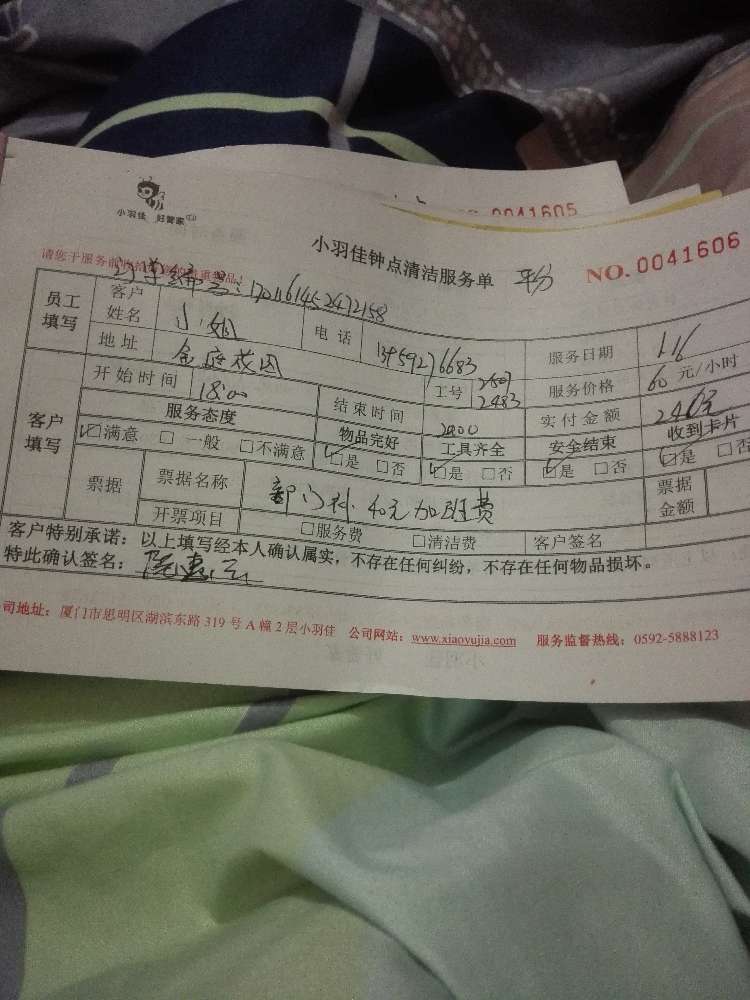 0041605
小羽佳 好管家
小羽佳钟点清洁服务单 平分 NO.0041606
请您于服务前
编号:1701161452472158
员工填写 客户姓名 小姐 电话 13459276683 服务日期 1.16
地址 金庭 工号 2607 2483 服务价格 60 元/小时
客户填写 开始时间 18:00 结束时间 2200 实付金额 240元
服务态度 物品完好 工具齐全 安全结束 收到卡片
☑满意 □一般 □不满意 ☑是 □否 ☑是 □否 ☑是 □否 ☑是 □否
票据 票据名称 部门补40元加班费 票据金额
开票项目 □服务费 □清洁费 客户签名
客户特别承诺:以上填写经本人确认属实,不存在任何纠纷,不存在任何物品损坏。
特此确认签名:
司地址:厦门市思明区湖滨东路 319 号 A 幢 2 层小羽佳 公司网站:www.xiaoyujia.com 服务监督热线:0592-5888123